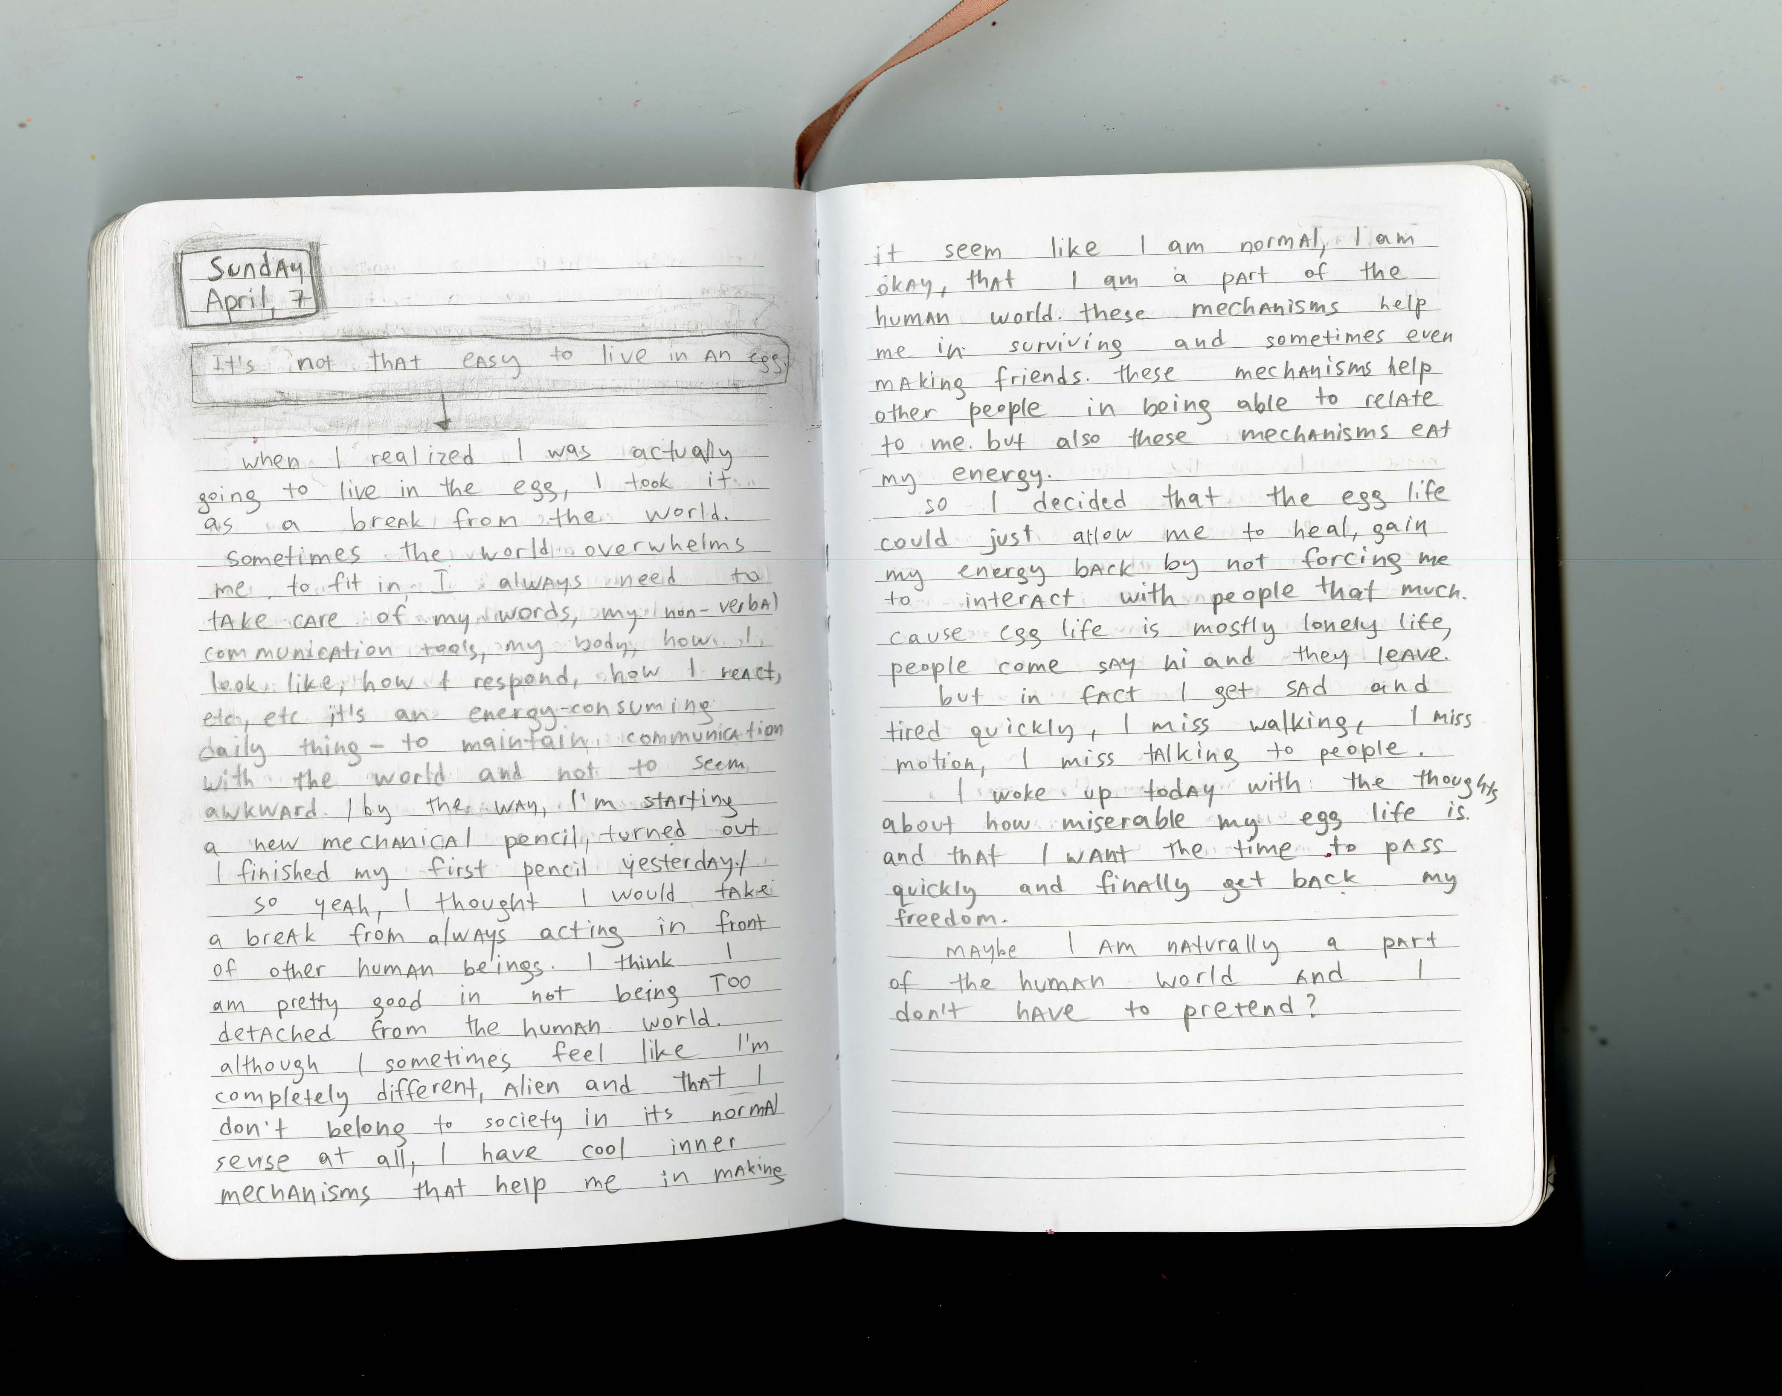 Sunday
April, 7
It's not that easy to live in an egg
when I realized I was actually
going to live in the egg, I took it
as a break from the world.
sometimes the world overwhelms
me. to fit in, I always need to
take care of my words, my non-verbal
communication tools, my body, how I
look like, how I respond, how I react,
etc, etc it's an energy-consuming
daily thing – to maintain communication
with the world and not to seem
awkward. /by the way, I'm starting
a new mechanical pencil, turned out
I finished my first pencil yesterday./
so yeah, I thought I would take
a break from always acting in front
of other human beings. I think I
am pretty good in not being TOO
detached from the human world.
although I sometimes feel like I'm
completely different, Alien and that I
don't belong to society in its normal
sense at all, I have cool inner
mechanisms that help me in making
it seem like I am normal, I am
okay, that I am a part of the
human world. these mechanisms help
me in surviving and sometimes even
making friends. these mechanisms help
other people in being able to relate
to me. but also these mechanisms eat
my energy.
so I decided that the egg life
could just allow me to heal, gain
my energy back by not forcing me
to interact with people that much.
cause egg life is mostly lonely life,
people come say hi and they leave.
but in fact I get sad and
tired quickly, I miss walking, I miss
motion, I miss talking to people.
I woke up today with the thoughts
about how miserable my egg life is.
and that I want the time to pass
quickly and finally get back my
freedom.
maybe I am naturally a part
of the human world and I
don't have to pretend?